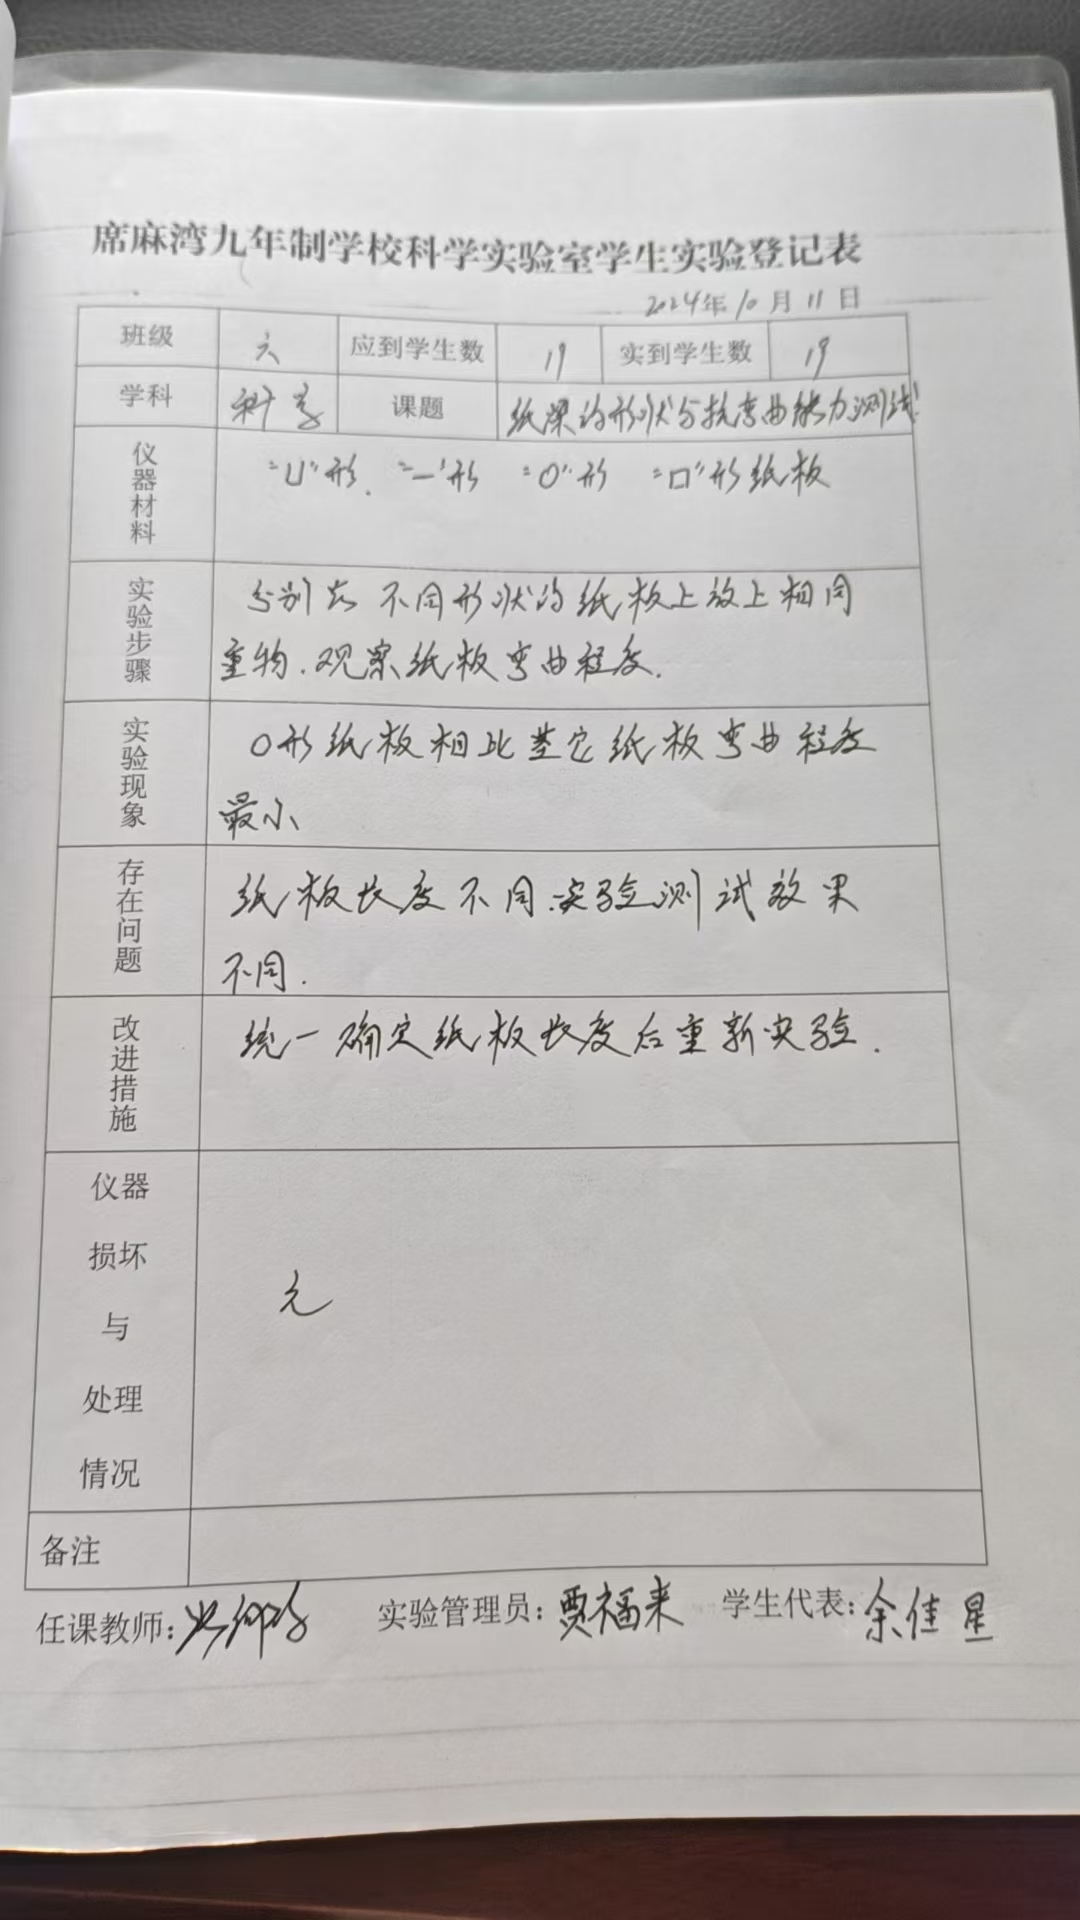 席麻湾九年制学校科学实验室学生实验登记表
2024年10月11日
班级 六 应到学生数 19 实到学生数 19
学科 科学 课题 纸梁的形状与抗弯曲能力测试
仪器材料 "U"形、"一"形 "O"形 "口"形纸板
实验步骤 分别在不同形状的纸板上放上相同
重物.观察纸板弯曲程度.
实验现象 O形纸板相比其它纸板弯曲程度
最小
存在问题 纸板长度不同.实验测试效果
不同.
改进措施 统一确定纸板长度后重新实验.
仪器
损坏
与
处理
情况
无
备注
任课教师: 实验管理员:贾福来 学生代表:余佳星